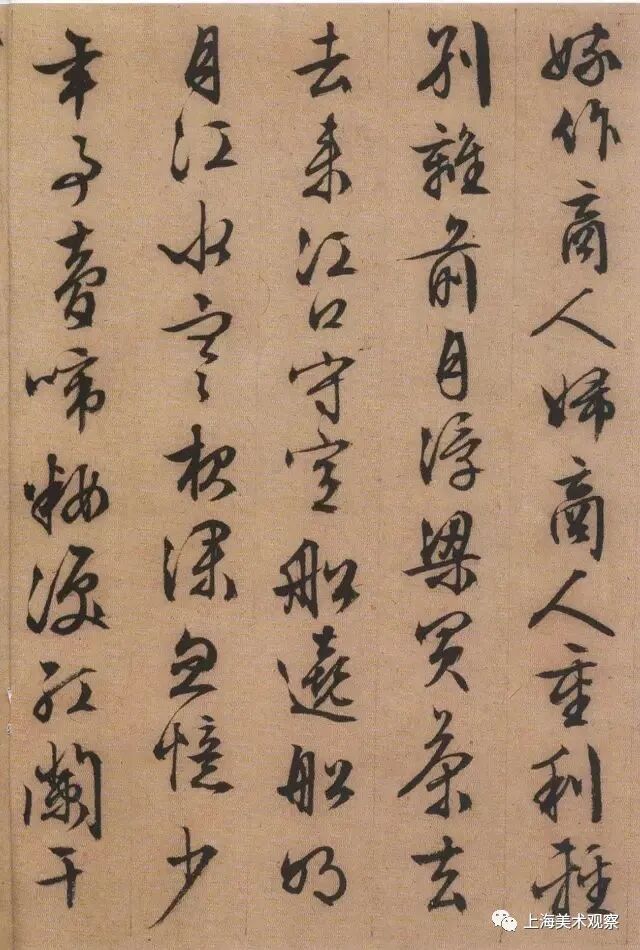 嫁作商人婦商人重利輕
別離前月浮梁買茶去
去来江口守空船遶船明
月江水寒夜深忽憶少
年事夢啼粧淚紅闌干
上海美术观察